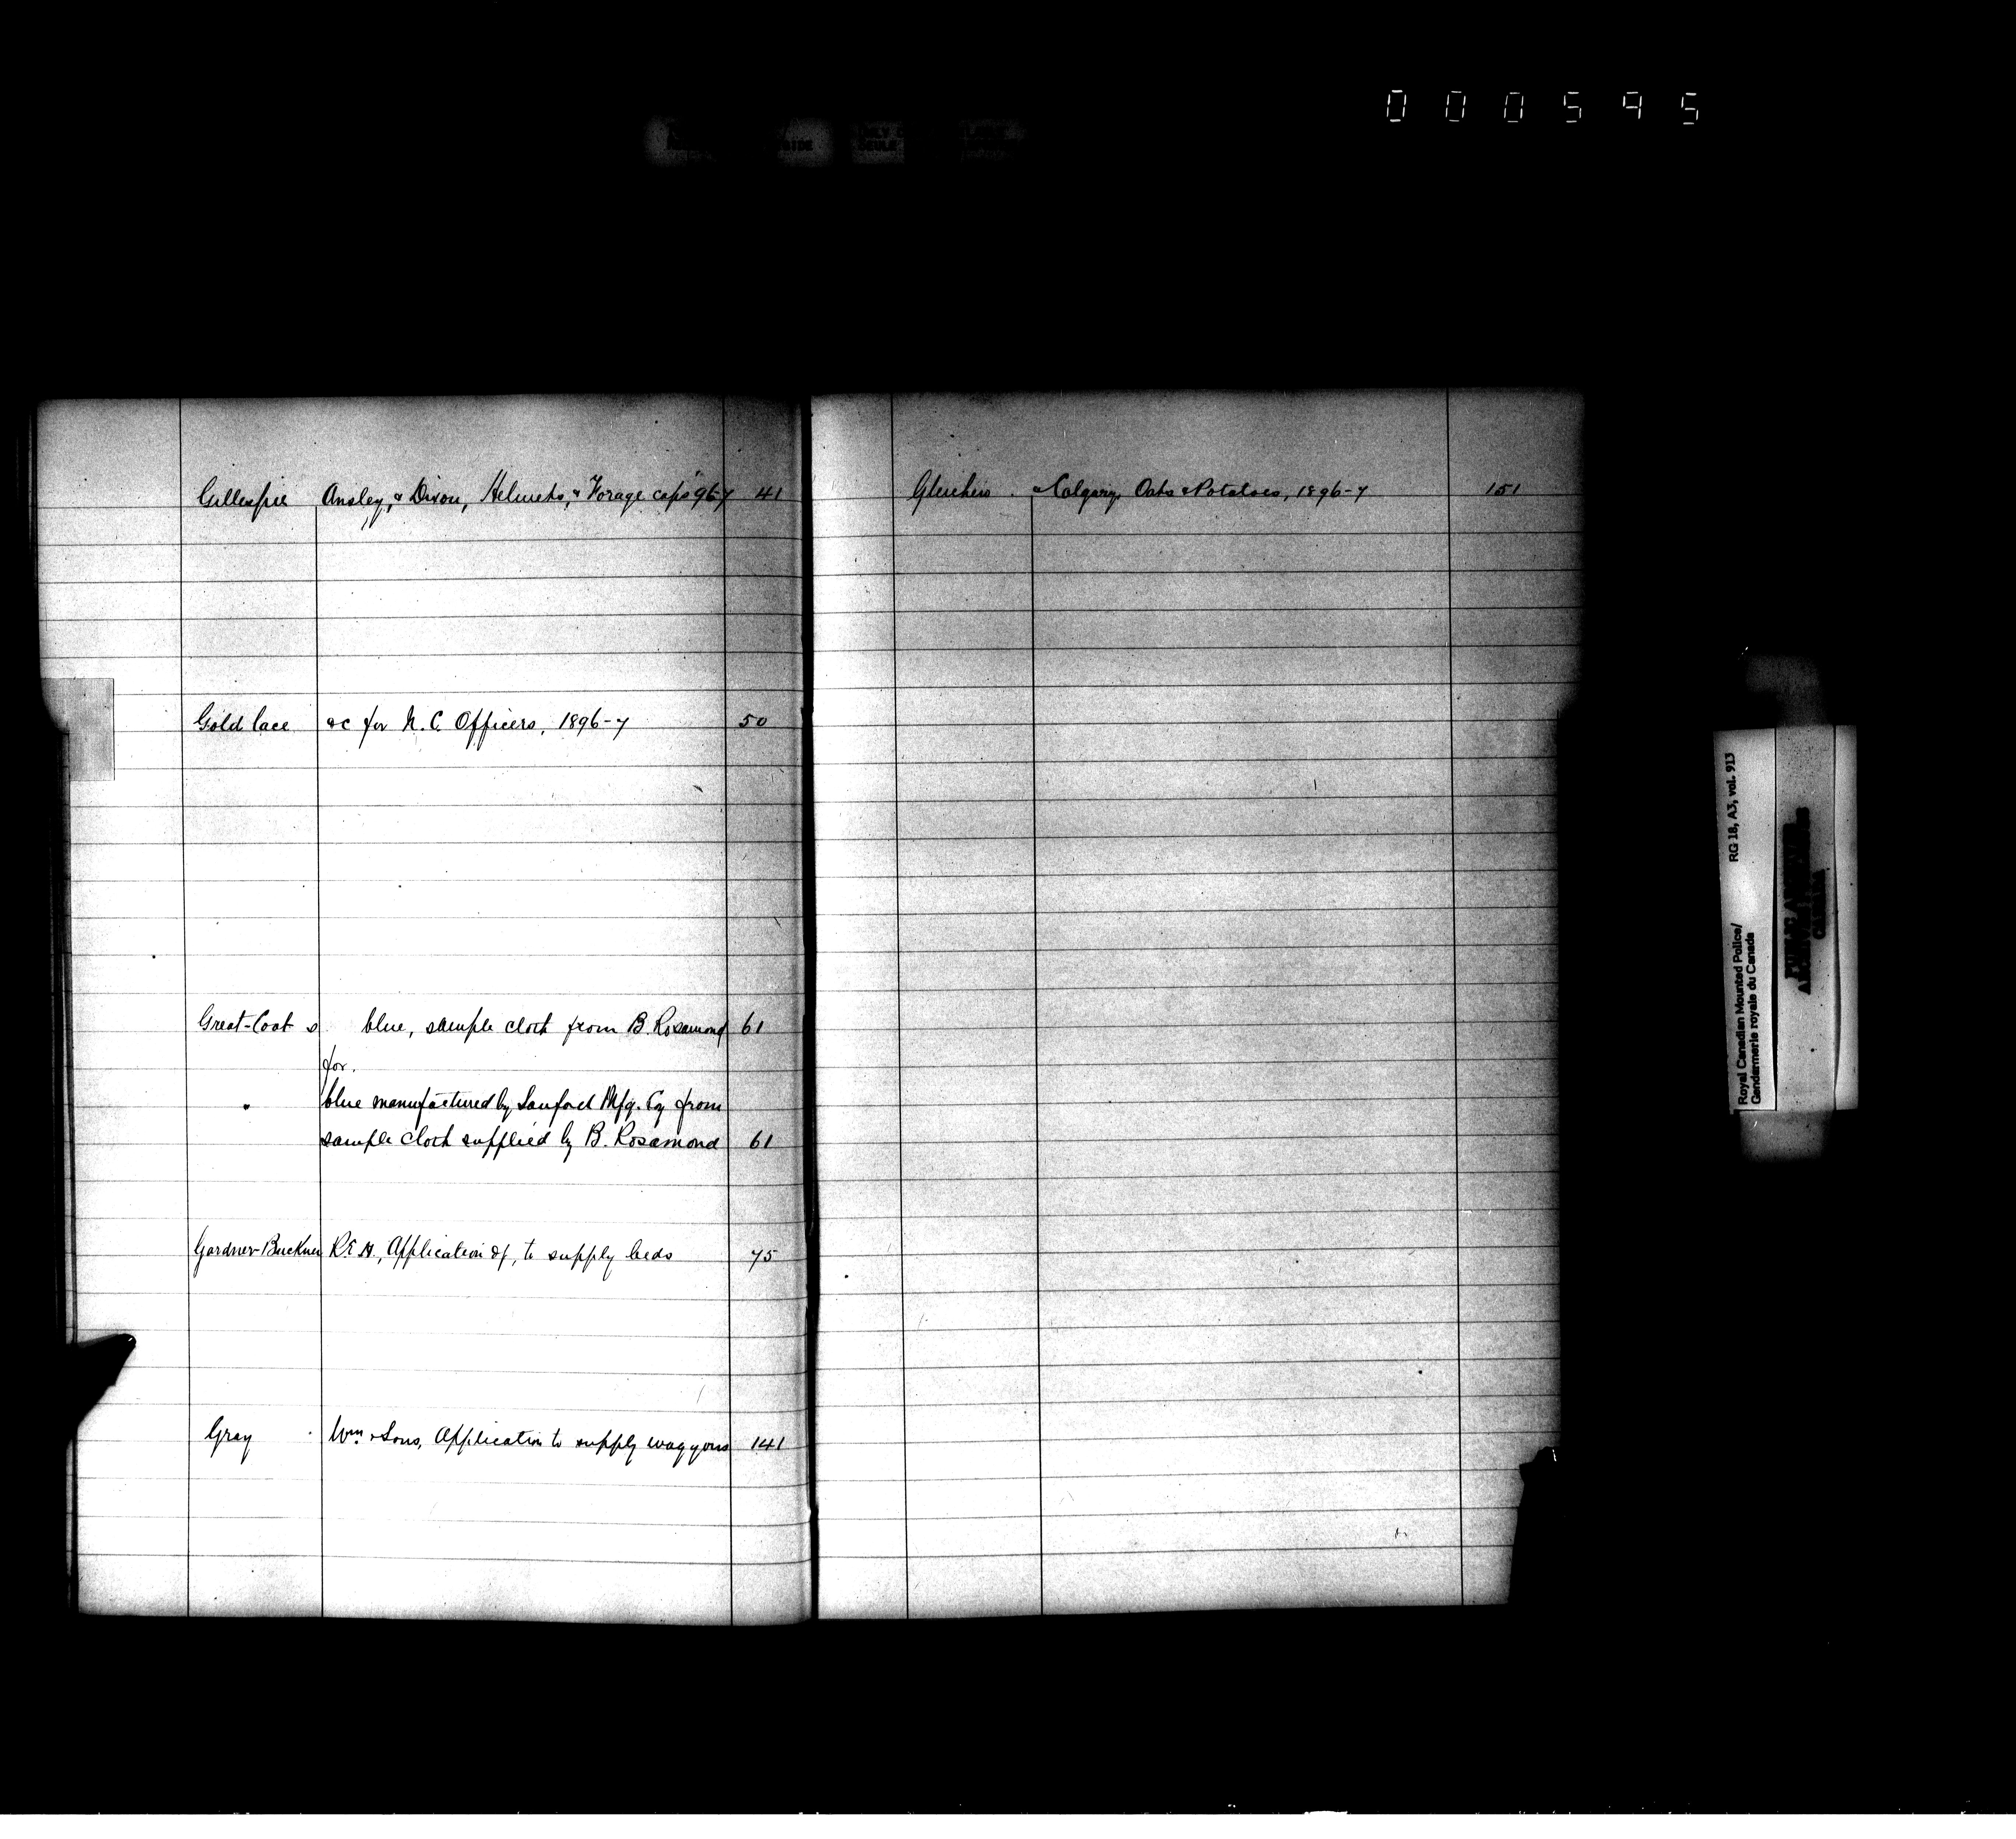 000595
Gillespie Ansley, & Dixon, Helmets, & Forage caps '96-7 41
Gold lace &c for N.C. Officers, 1896-7 50
Great-Coat s blue, sample cloth from B. Rosamond 61
for.
" blue manufactured by Sanford Mfg. Coy from
sample cloth supplied by B. Rosamond 61
Gardner-Buckner R.E.H., Application of, to supply beds 75
Gray Wm & Sons, Application to supply waggons 141
Gleichen & Calgary, Oats & Potatoes, 1896-7 151
Royal Canadian Mounted Police/ RG 18, A3, vol. 913
Gendarmerie royale du Canada